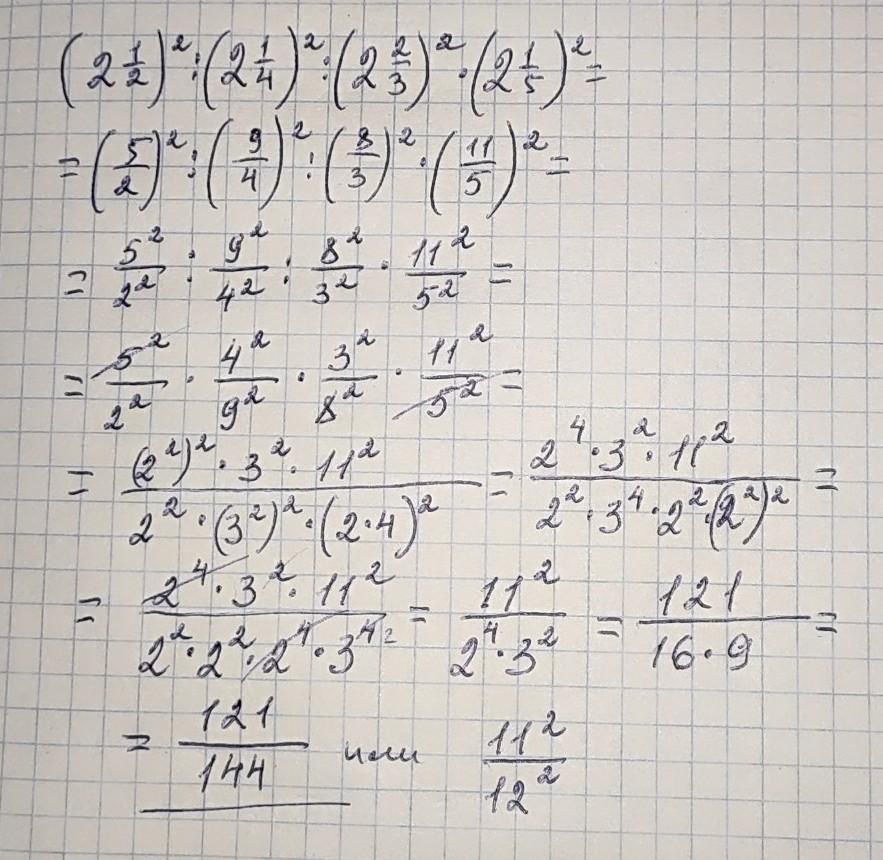 (2 1/2)² : (2 1/4)² : (2 2/3)² · (2 1/5)² =
= (5/2)² : (9/4)² : (8/3)² · (11/5)² =
= 5²/2² : 9²/4² : 8²/3² · 11²/5² =
= 5²/2² · 4²/9² · 3²/8² · 11²/5² =
= ((2²)² · 3² · 11²)/(2² · (3²)² · (2·4)²) = (2⁴ · 3² · 11²)/(2² · 3⁴ · 2² · (2²)²) =
= (2⁴ · 3² · 11²)/(2² · 2² · 2⁴ · 3⁴ ²) = 11²/(2⁴ · 3²) = 121/(16 · 9) =
= 121/144 или 11²/12²